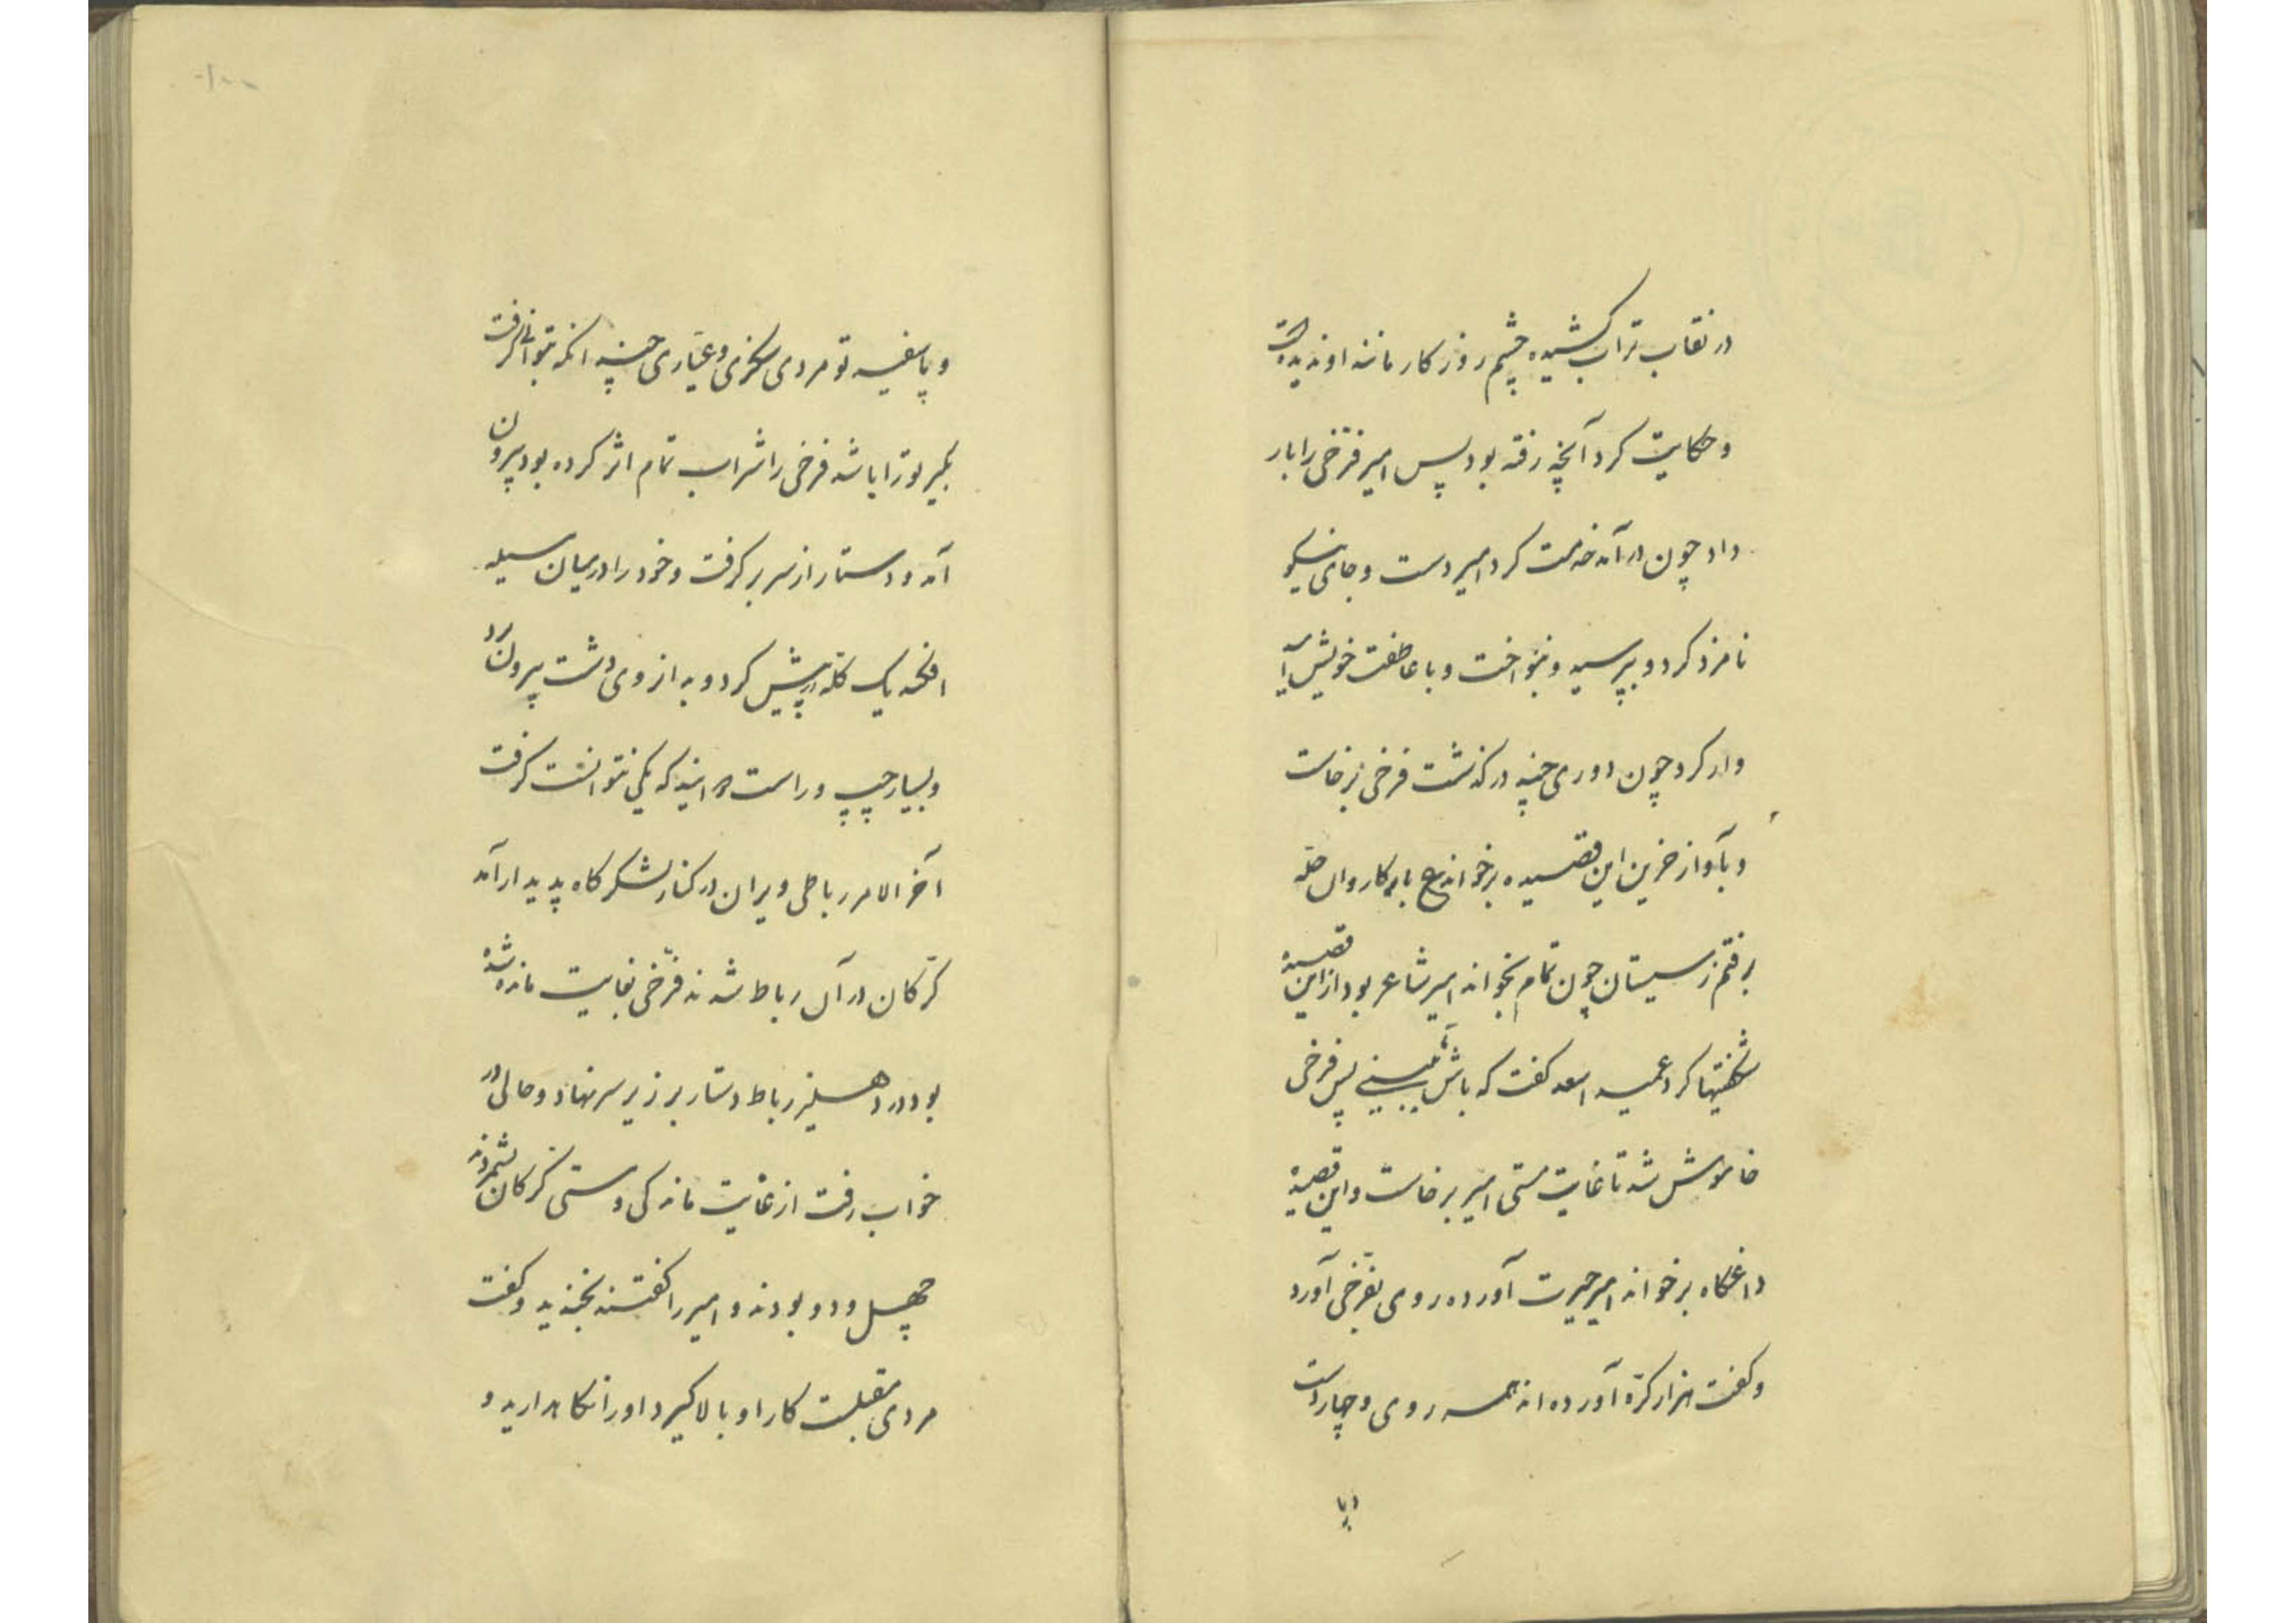 در نقاب تراب کشیده چشم روزکار مانند او ندیده است
و حکایت کرد آنچه رفته بود پس امیر فرخی را بار
داد چون در آمد خدمت کرد امیر دست و جای نیکو
نامزد کرد و بپرسید و بنواخت و با عاطفت خویش
وار کرد چون دوری چند درکذشت فرخی برخاست
و بآواز حزین این قصیده برخواند ع با کاروان حله
برفتم ز سیستان چون تمام بخواند امیر شاعر بود از این قصیده
شکفتیها کرد عمید اسعد کفت که باش تا ببینی پس فرخی
خاموش شد تا غایت مستی امیر برخاست و این قصیده
داغکاه برخواند امیر حیرت آورده روی بفرخی آورد
و کفت هزار کرّه آورده اند همه روی و چهار دست
و پا
و پا سفید تو مردی سکزی و عیّاری چند انکه بتوانی کرفت
بکیر تو را باشد فرخی را شراب تمام اثر کرده بود بیرون
آمد و دستار از سر بر کرفت و خود را در میان سیله
افکند یک کله در پیش کرد و بد از وی دشت بیرون برد
و بسیار چپ و راست دوانید که یکی نتوانست کرفت
آخر الامر رباطی ویران در کنار لشکرکاه پدیدار آمد
کرّکان در آن رباط شدند فرّخی بغایت مانده شده
بود در دهلیز رباط دستار بر زیر سر نهاد و حالی در
خواب رفت از غایت ماندکی و مستی کرکان بشمردند
چهل و دو بودند و امیر را کفتند بخندید و کفت
مردی مقبلست کار او بالا کیرد او را نکاه دارید و